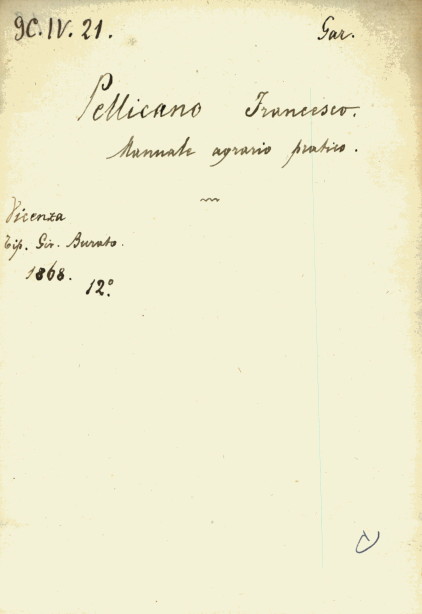 9C.IV.21. Gar.
Pellicano Francesco.
Manuale agrario pratico.
Vicenza
Tip. Gir. Burato.
1868.
12°